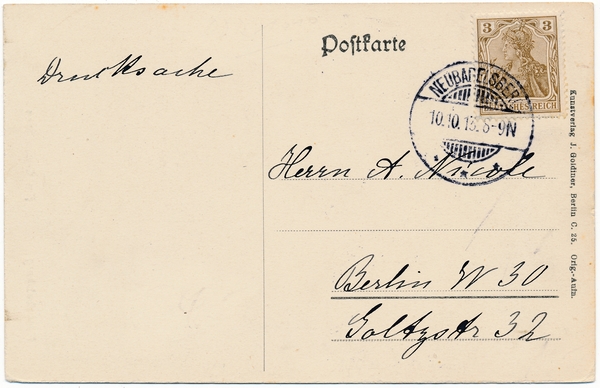 Postkarte
Drucksache
3 3
DEUTSCHES REICH
NEUBABELSBERG
10.10.15. 8-9N
Herrn A. Nicole
Berlin W 30
Goltzstr 32
Kunstverlag J. Goldiner, Berlin C. 25. Orig.-Aufn.